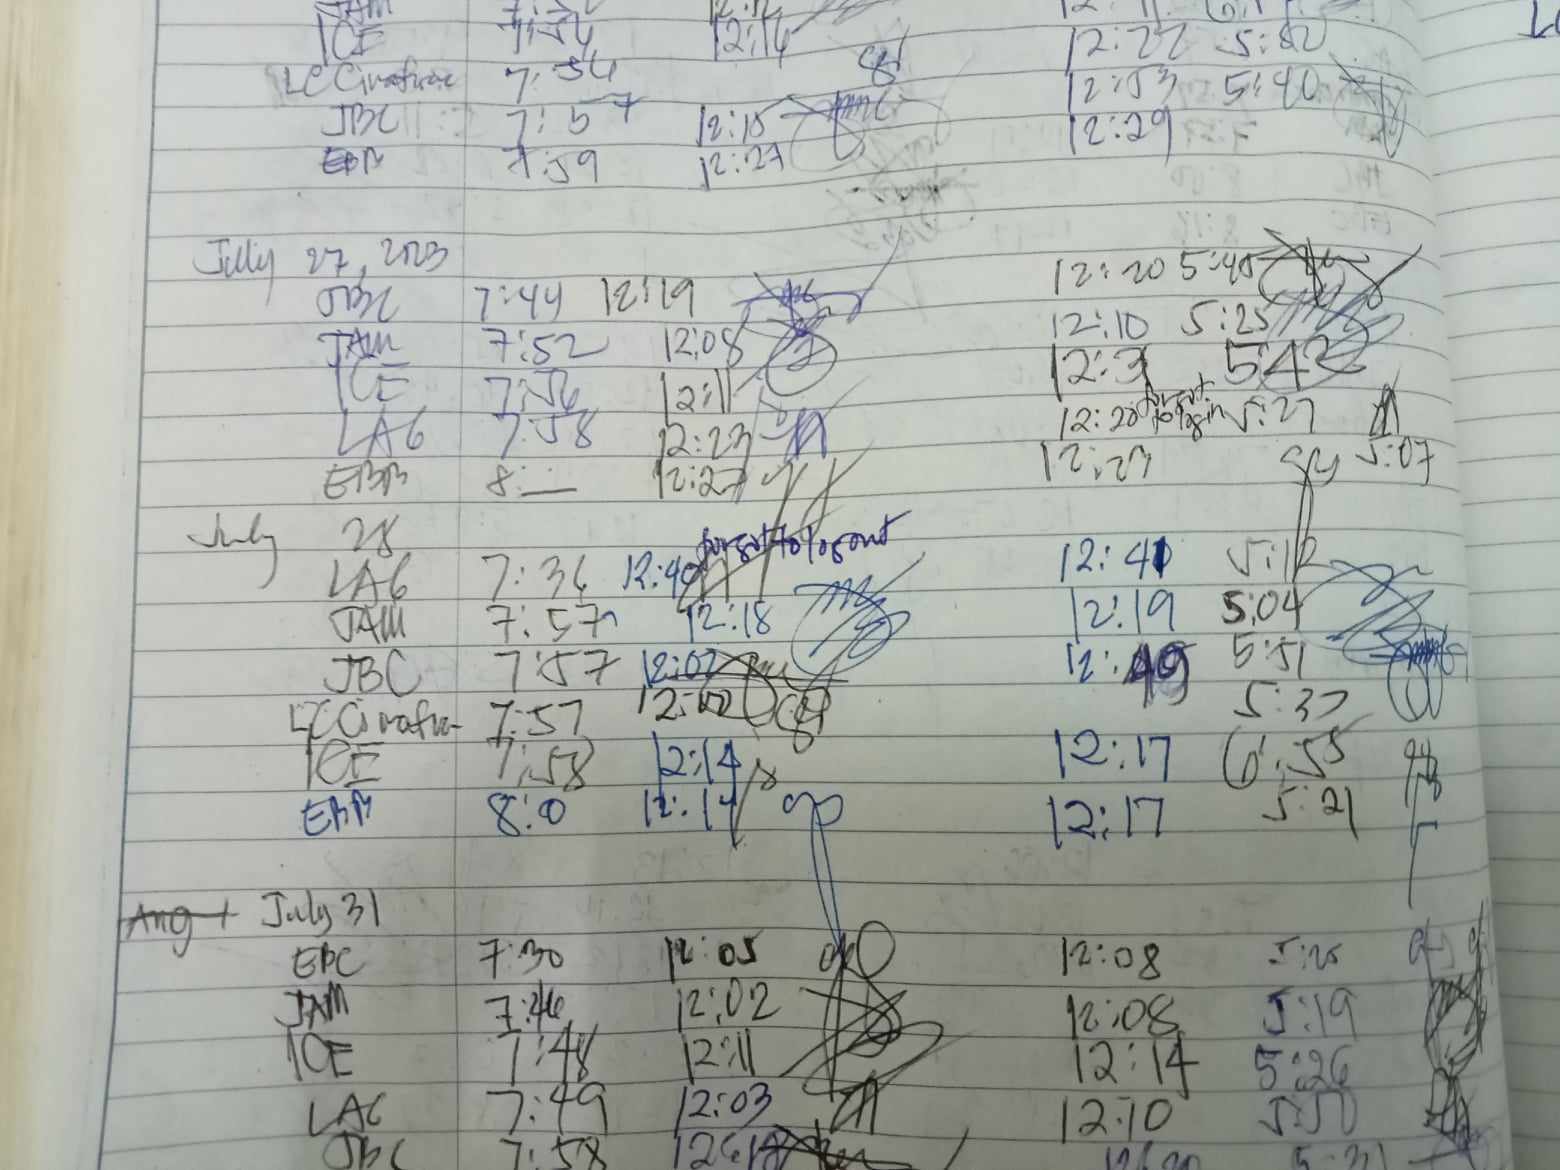 JAM
ICE 7:54 12:14 12:22 5:52
LC Cinafranca 7:54 12:53 5:40
JBC 7:57 12:15 12:29
EBM 7:59 12:27
July 27, 2023
JBC 7:44 12:19 12:20 5:45
JAM 7:52 12:08 12:10 5:25
ICE 7:56 12:11 12:31 5:42
LAG 7:58 12:23 12:20 forgot to login 5:27
EBM 8:__ 12:27 12:23 5:07
July 28
LAG 7:36 12:40 forgot to logout 12:41 5:12
JAM 7:57 12:18 12:19 5:04
JBC 7:57 12:02 12:49 5:51
7:57 5:37
ICE 7:58 12:14 12:17 6:55
EBM 8:0 12:14 12:17 5:21
Aug 1 July 31
EBC 7:30 12:05 12:08 5:25
JAM 7:46 12:02 12:08 5:19
ICE 7:48 12:11 12:14 5:26
LAG 7:49 12:03 12:10 5:50
JBC 7:58 12:18 5:31